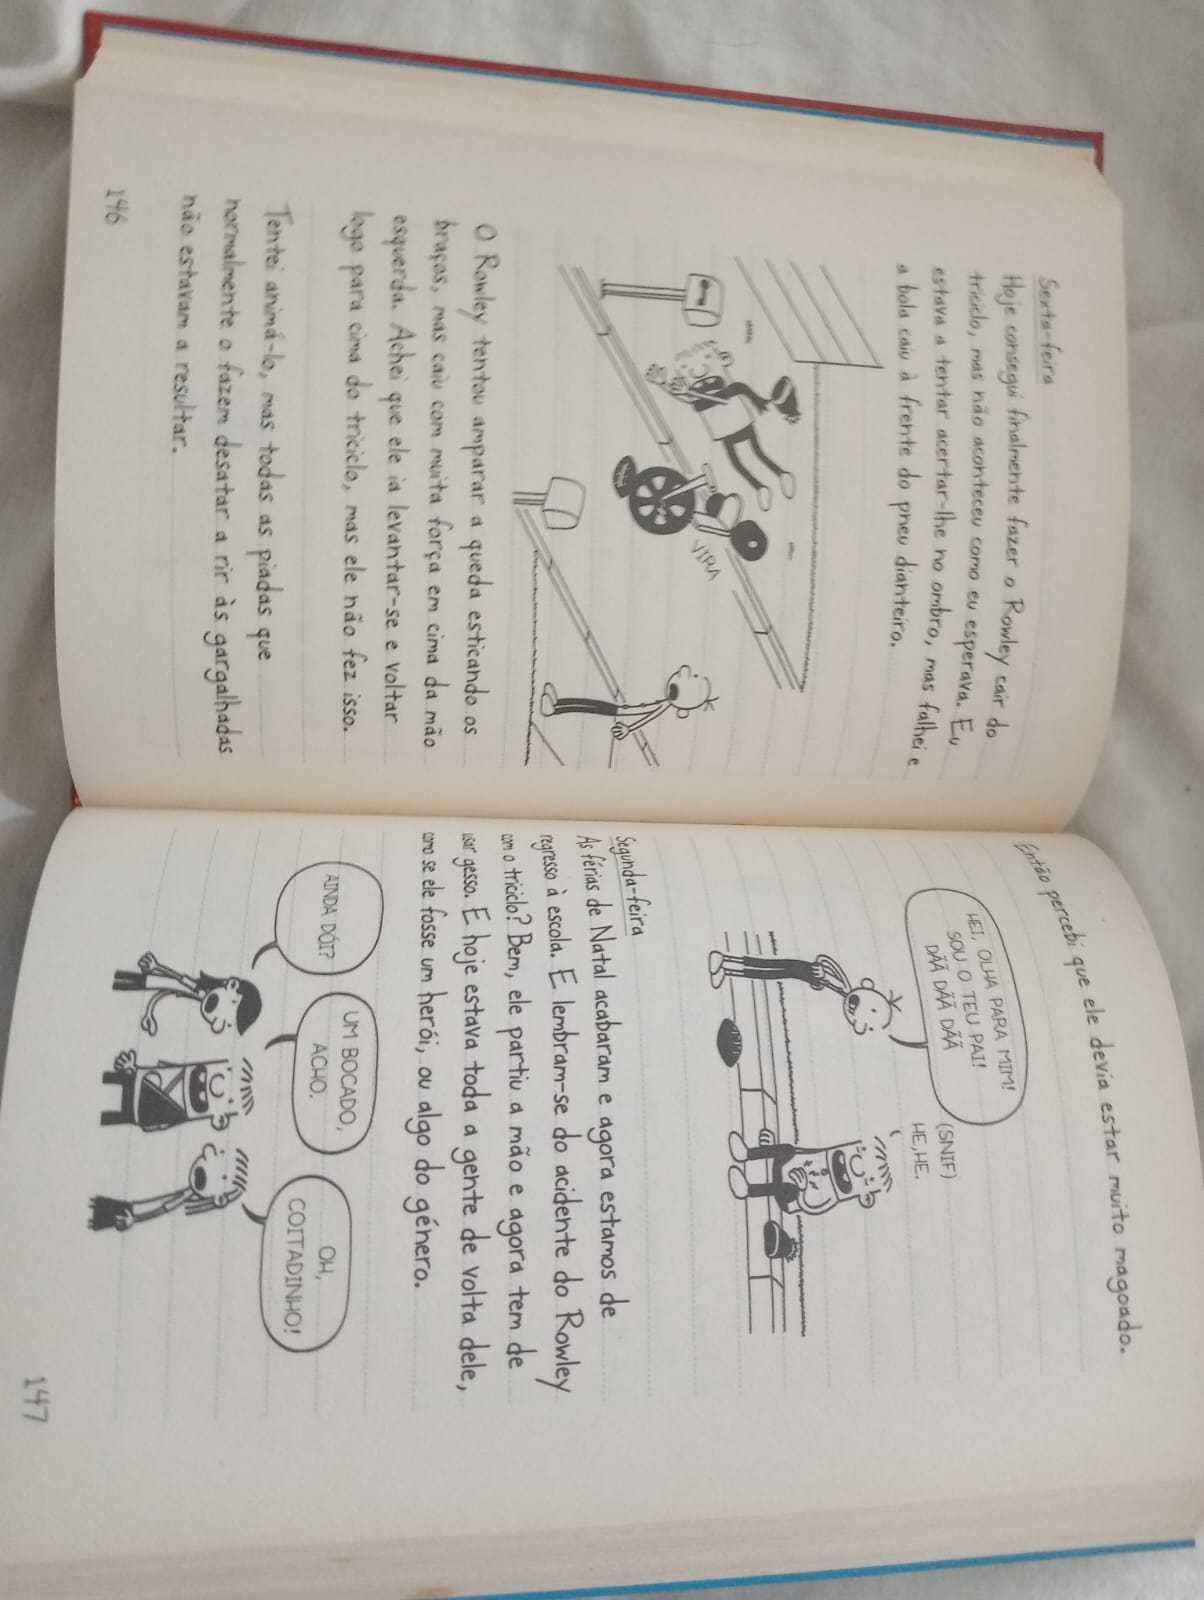 Sexta-feira
Hoje consegui finalmente fazer o Rowley cair do
triciclo, mas não aconteceu como eu esperava. Eu
estava a tentar acertar-lhe no ombro, mas falhei e
a bola caiu à frente do pneu dianteiro.
VIRA
O Rowley tentou amparar a queda esticando os
braços, mas caiu com muita força em cima da mão
esquerda. Achei que ele ia levantar-se e voltar
logo para cima do triciclo, mas ele não fez isso.
Tentei animá-lo, mas todas as piadas que
normalmente o fazem desatar a rir às gargalhadas
não estavam a resultar.
146
Então percebi que ele devia estar muito magoado.
HEI, OLHA PARA MIM!
SOU O TEU PAI!
DÃÃ DÃÃ DÃÃ
(SNIF)
HE, HE.
Segunda-feira
As férias de Natal acabaram e agora estamos de
regresso à escola. E lembram-se do acidente do Rowley
com o triciclo? Bem, ele partiu a mão e agora tem de
usar gesso. E hoje estava toda a gente de volta dele,
como se ele fosse um herói, ou algo do género.
AINDA DÓI?
UM BOCADO,
ACHO.
OH,
COITADINHO!
147